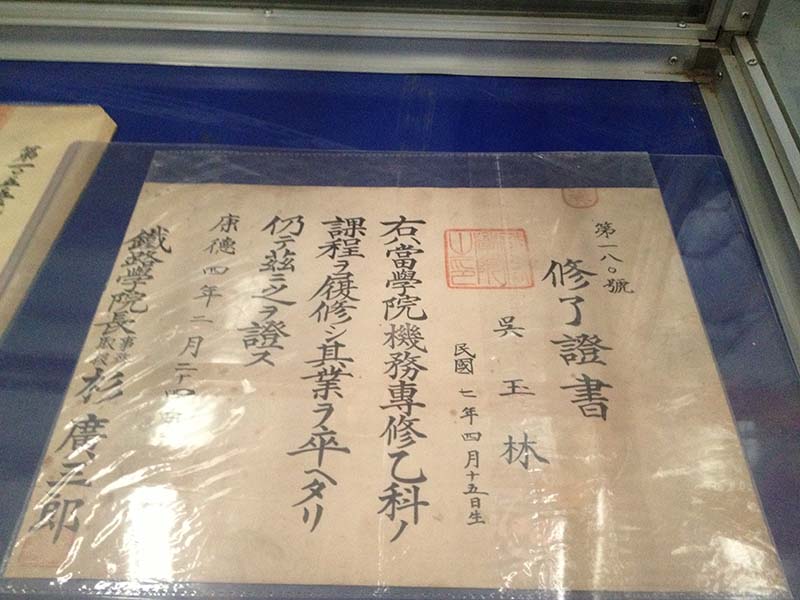 第一八〇號
修了證書
吳玉林
民國七年四月十五日生
右ハ當學院機務專修乙科ノ
課程ヲ履修シ其業ヲ卒ヘタリ
仍テ茲ニ之ヲ證ス
康德四年二月二十四日
鐵路學院長事務取扱 杉廣三郎
第一